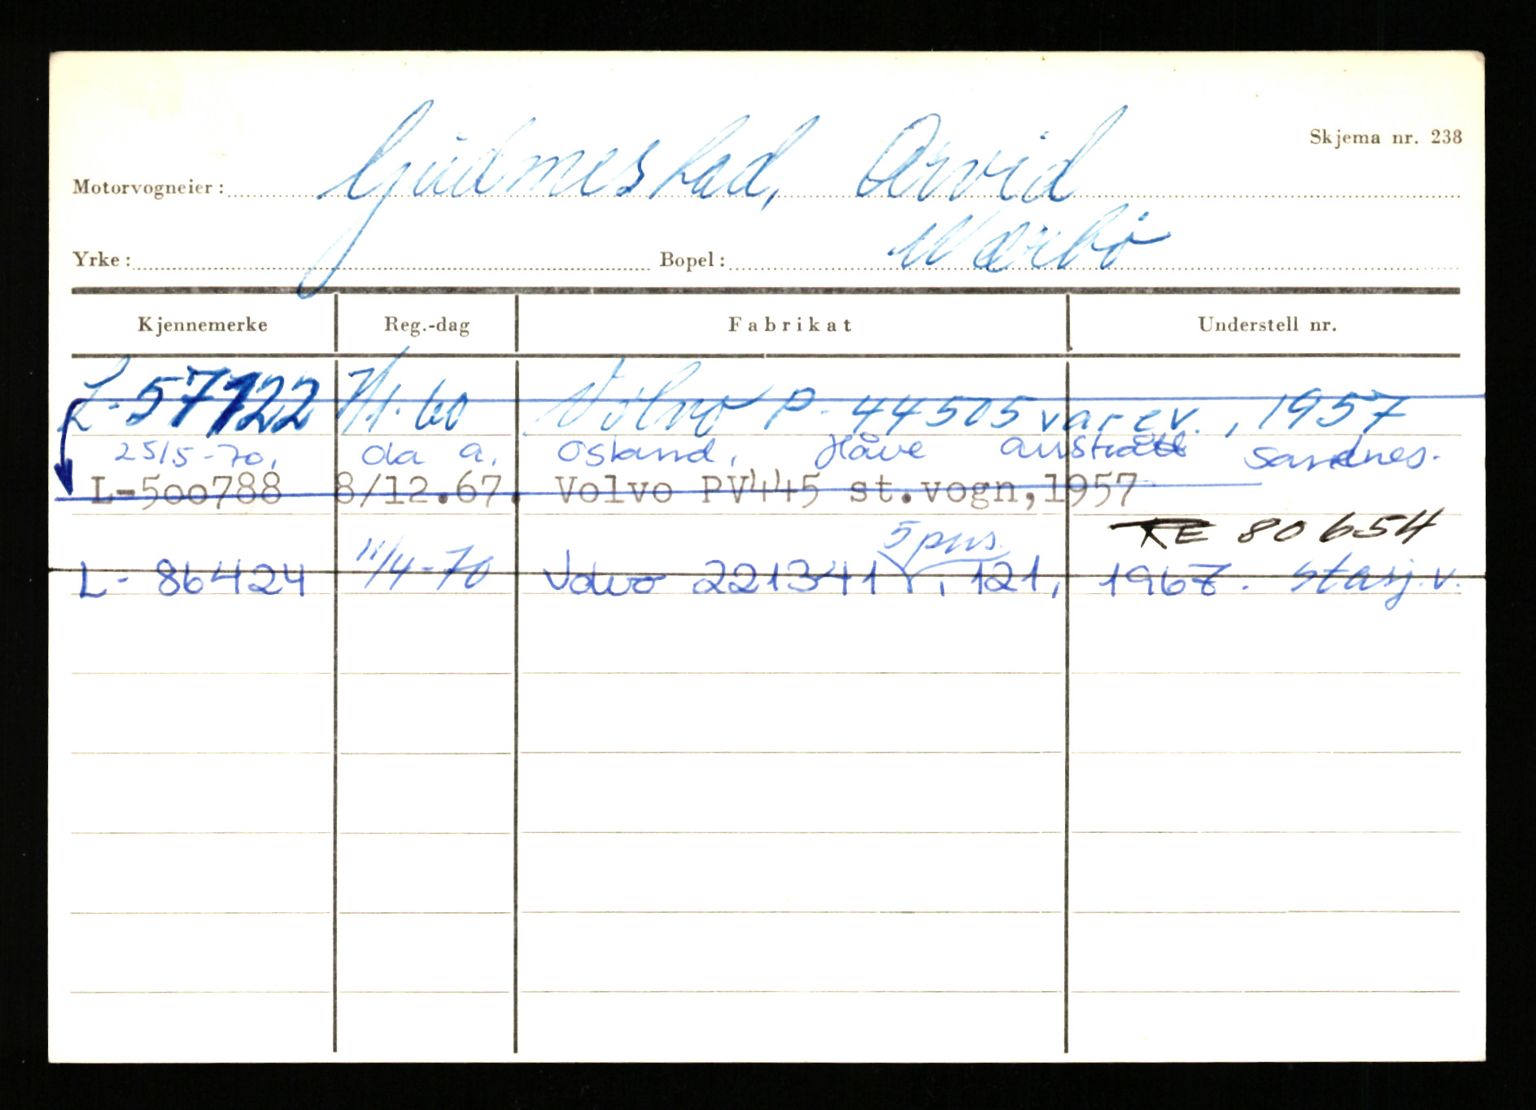 Skjema nr. 238
Motorvogneier: Gudmestad, Arvid
Yrke: Bopel: Nærbø
Kjennemerke Reg.-dag Fabrikat Understell nr.
L-57122 7/1-60 Volvo P-44505 varev., 1957
25/5-70, da a. Osland, Håve Austrått Sandnes.
L-500788 8/12.67. Volvo PV445 st.vogn,1957
5 pers. RE 80654
L-86424 11/4-70 Volvo 221341, 121, 1967. stasj.v.